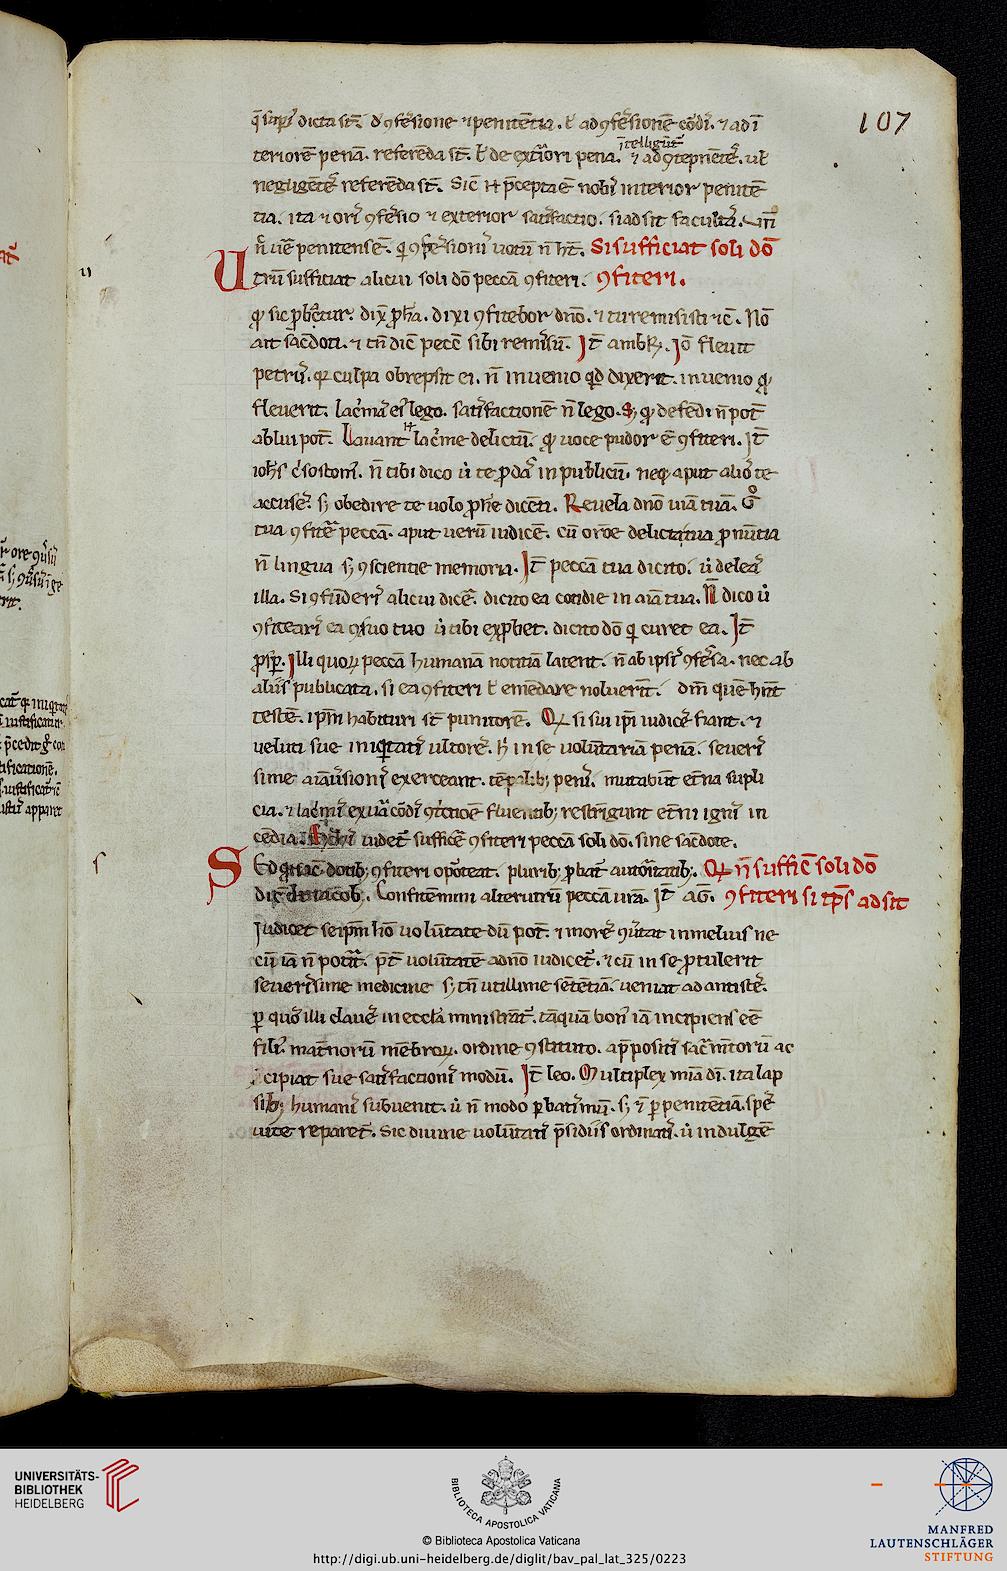 107
q̄ sup̄ dicta st̄. d' ɔfes̄ione ⁊ penitētia. ł ad ɔfes̄ionē cōdi. ⁊ ad ī
ītelligūt̄
teriorē penā. referēda st̄. ł de ext̄iori pena. ⁊
negligēt̄ referēda st̄. Sic̄ p̄cepta ē nobis interior penitē
tia. ita ⁊ oris ɔfes̄io ⁊ exterior satisfactio. si adsit facultas.
penitensē. qi ɔfes̄ionis uotū n̄ ht̄. Si sufficiat soli dō
Utrū sufficiat alicui soli dō peccā ɔfiteri. ɔfiteri.
dix̄ ꝓph̄a. dixi ɔfitebor dn̄o. ⁊ tu remisisti ⁊c̄. Nō
ait sac̄doti. ⁊ tn̄ dic̄ pecē sibi remis̄ū. It̄ ambꝶ. Iō fleuit
petrus. qꝛ culpa obrepsit ei. n̄ inuenio qđ dixerit. inuenio qđ
fleuerit. lac̄mas ei lego. satisfactionē n̄ lego. Sꝫ qđ defēdi n̄ pot̄
ablui pot̄. Lauant lac̄me delictū. qđ uoce pudor ē ɔfiteri. It̄
ioh̄s c̄sostom̄. n̄ tibi dico ut te ꝓdas in publicū. neqꝫ aput alios te
accuses. sꝫ obedire te uolo ꝓph̄e dicēti. Reuela dn̄o uiā tuā. Gͦ
tua ɔfitēr̄ peccā. aput uerū iudicē. cū orōe delicta tua ꝓnūtia
n̄ lingua sꝫ ɔscientie memoria. It̄ peccā tua dicito. ut deleas
illa. Si ɔfūderis alicui dic̄e. dicito ea cotidie in aīa tua. N̄ dico ut
ɔfitearis ea ɔs̄uo tuo ut tibi exꝓbret. dicito dō qi curet ea. It̄
ꝓsp̄. Illi quoꝝ peccā humanā notitiā latent. n̄ ab ipsis ɔfes̄a. nec ab
aliis publicata. si ea ɔfiteri ł emēdare noluerīt. dm̄ quē hn̄t
testē. ip̄m habituri st̄ punitorē. Qđ si sui ip̄i iudices fiant. ⁊
ueluti sue iniqitatis ultores. h̄ in se uolūtariā penā. seueris
sime aīaduersionis exerceant. tēpalibꝫ penis. mutabūt etn̄a supli
cia. ⁊ lac̄mis ex ua cōdis ɔt̄itiōe fluentibꝫ restrīgunt etn̄i ignis in
cēdia. His uidet̄ suffic̄e ɔfiteri peccā soli dō. sine sac̄dote.
Sed qđ sac̄dotibꝫ ɔfiteri oporteat. pluribꝫ ꝓbat̄ auctoritatibꝫ. Qđ n̄ suffic̄ soli dō
dic̄ iacob. Confitemini alterutrū peccā urā. It̄ aḠ. ɔfiteri si tp̄s adsit
Iudicet seip̄m hō uolūtate dū pot̄. ⁊ mores ɔuertat in melius ne
cū iā n̄ potīt. pt̄ uolūtatē a dn̄o iudicet̄. ⁊ cū in se ꝓtulerit
seueris̄ime medicine sꝫ tn̄ utillime sētētiā. ueniat ad antistes.
ꝑ quos illi claues in eccl̄a ministrāt̄. tāquā bonus iā incipiens eē
filius. mat̄noru mēbroꝝ. ordine ɔstituto. a p̄positis sac̄mtorū ac
cipiat sue satisfactionis modū. It̄ leo. Multiplex mīa dī. ita lap
sibꝫ humanis subuenit. ut n̄ modo ꝑ batismū. sꝫ ⁊ ꝑ penitētiā. spes
uite reparet̄. Sic diuine uolūtatis p̄sidiis ordinatis. ut indulgē
UNIVERSITÄTS-
BIBLIOTHEK
HEIDELBERG
BIBLIOTECA APOSTOLICA VATICANA
© Biblioteca Apostolica Vaticana
http://digi.ub.uni-heidelberg.de/diglit/bav_pal_lat_325/0223
MANFRED
LAUTENSCHLÄGER
STIFTUNG